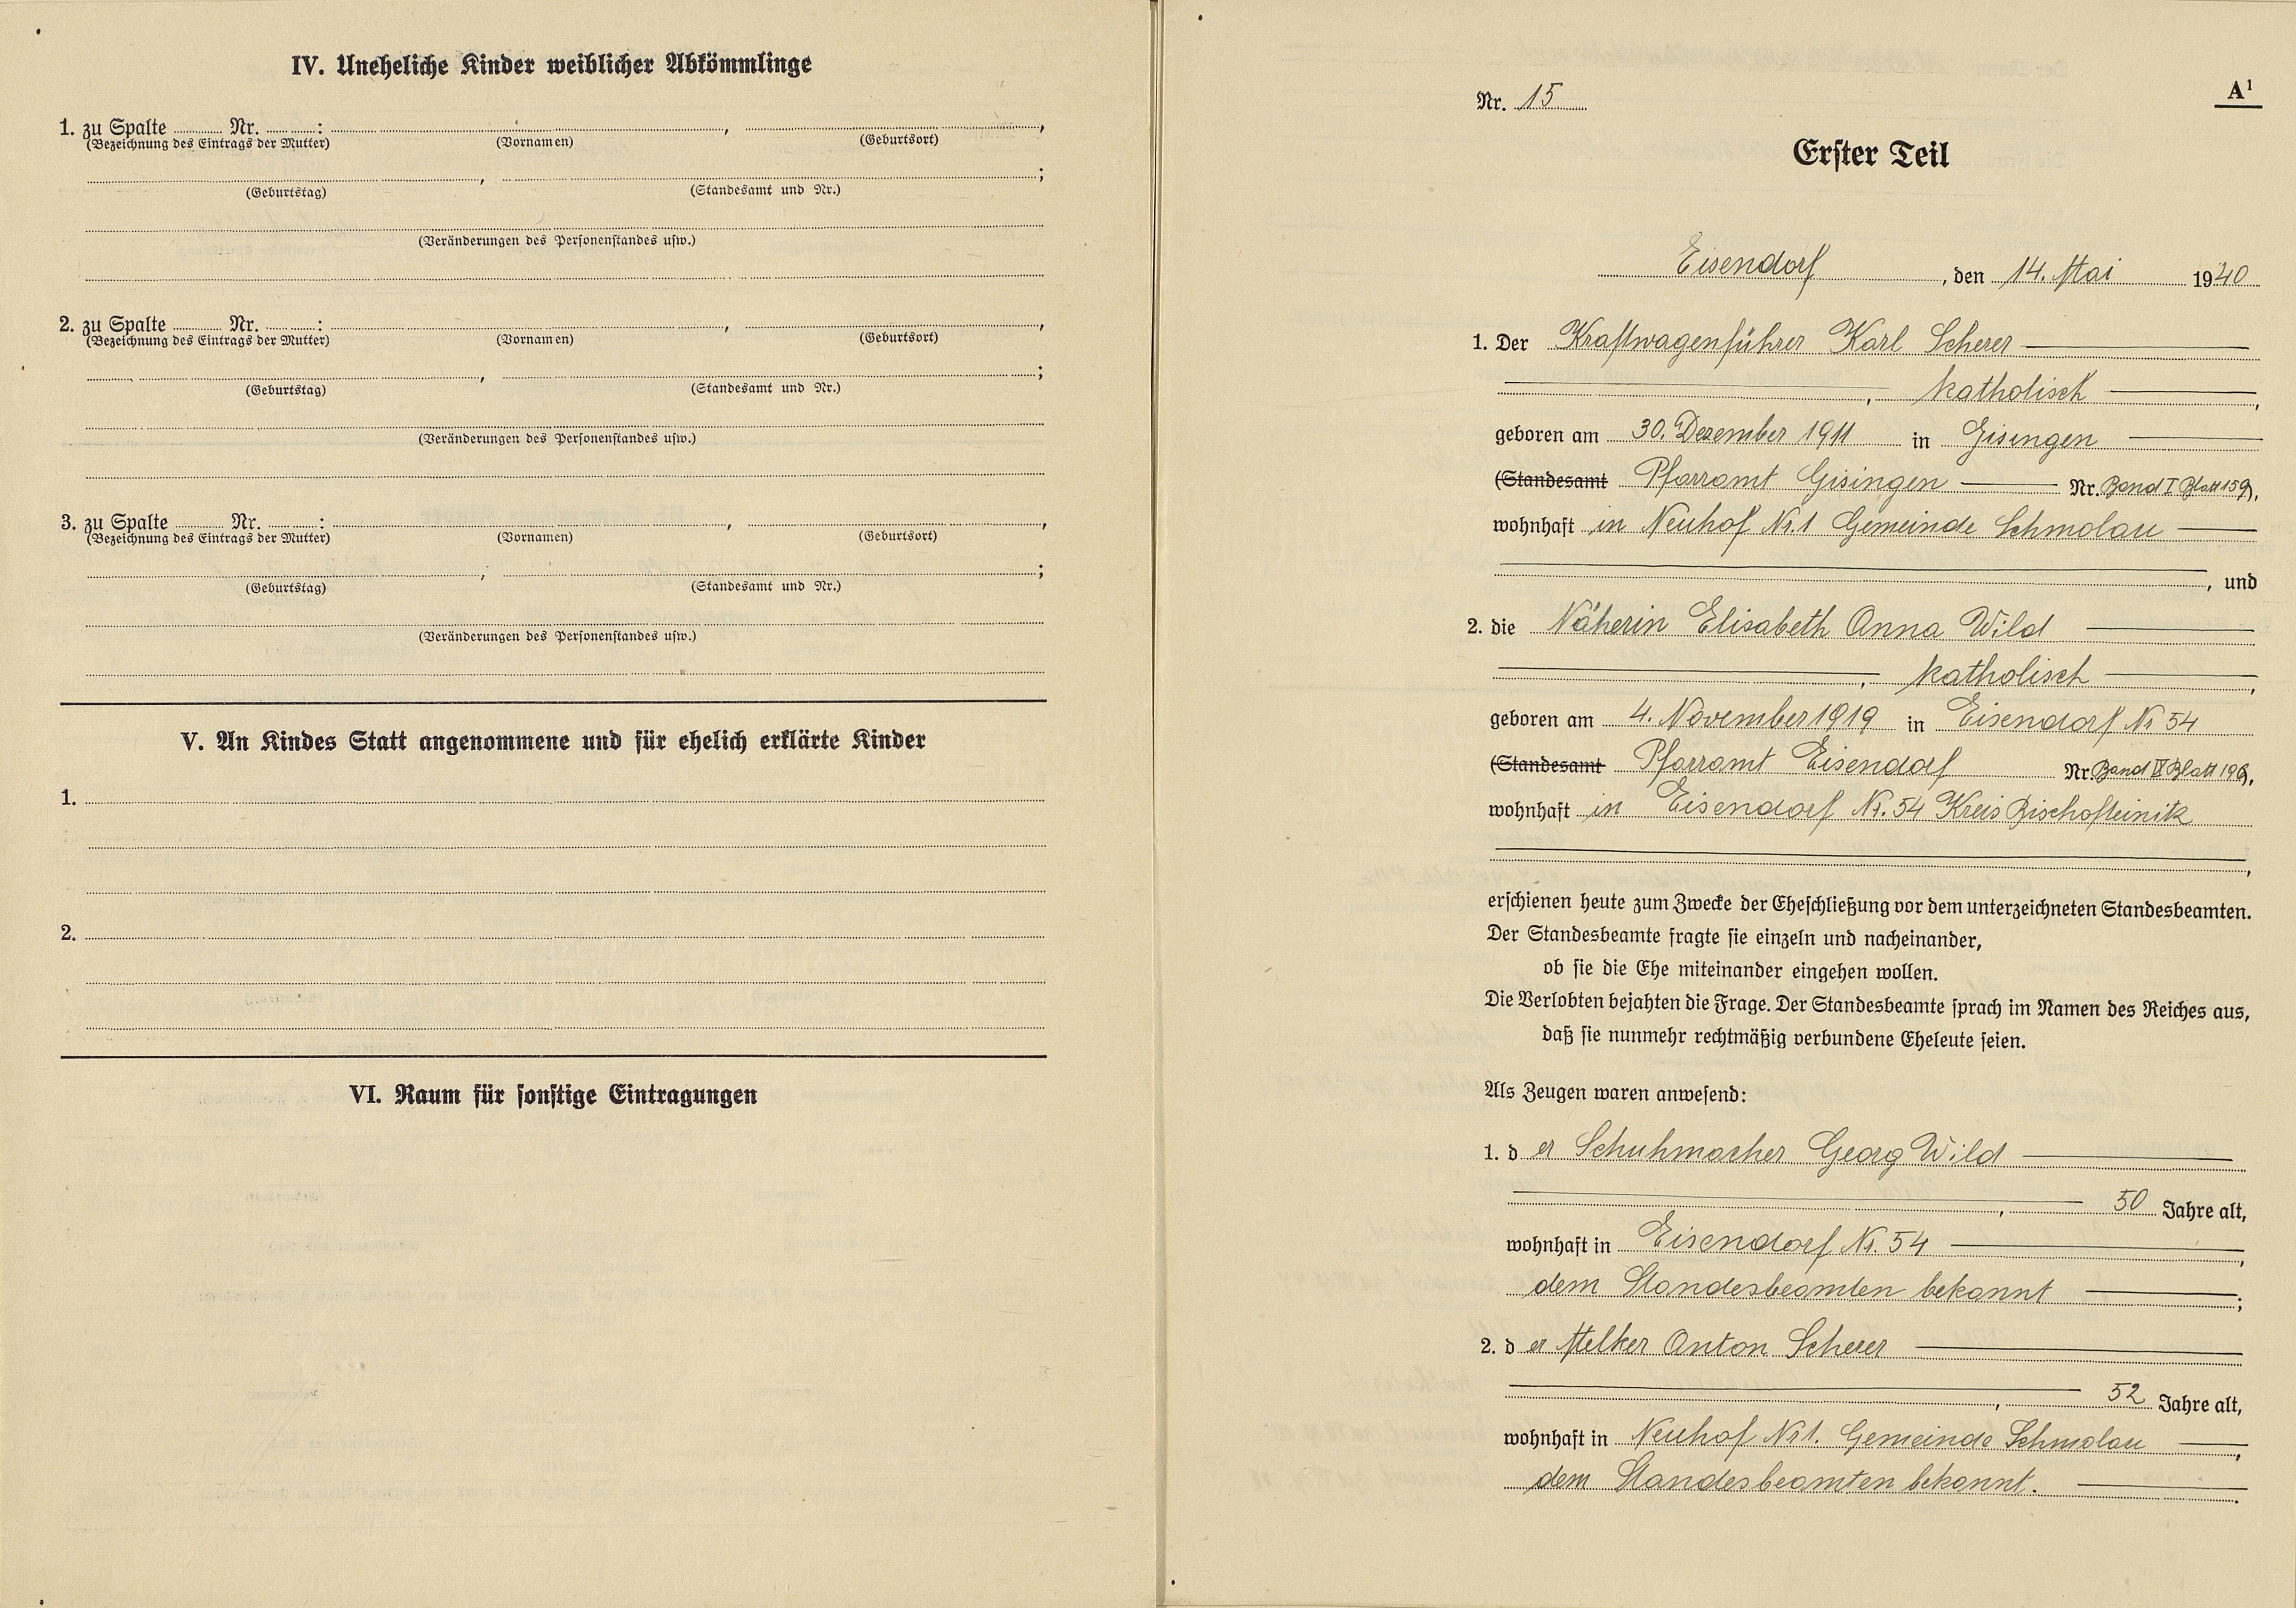 IV. Uneheliche Kinder weiblicher Abkömmlinge
1. zu Spalte Nr. : , ,
(Bezeichnung des Eintrags der Mutter) (Vornamen) (Geburtsort)
, ;
(Geburtstag) (Standesamt und Nr.)
(Veränderungen des Personenstandes usw.)
2. zu Spalte Nr. : , ,
(Bezeichnung des Eintrags der Mutter) (Vornamen) (Geburtsort)
, ;
(Geburtstag) (Standesamt und Nr.)
(Veränderungen des Personenstandes usw.)
3. zu Spalte Nr. : , ,
(Bezeichnung des Eintrags der Mutter) (Vornamen) (Geburtsort)
, ;
(Geburtstag) (Standesamt und Nr.)
(Veränderungen des Personenstandes usw.)
V. An Kindes Statt angenommene und für ehelich erklärte Kinder
1.
2.
VI. Raum für sonstige Eintragungen
Nr. 15
A1
Erster Teil
Eisendorf, den 14. Mai 1940
1. Der Kraftwagenführer Karl Scherer
, katholisch,
geboren am 30. Dezember 1911 in Gisingen
(Standesamt Pfarramt Gisingen Nr. Band I Blatt 159),
wohnhaft in Neuhof Nr. 1 Gemeinde Schmolau
, und
2. die Näherin Elisabeth Anna Wild
, katholisch,
geboren am 4. November 1919 in Eisendorf Nr 54
(Standesamt Pfarramt Eisendorf Nr. Band IX Blatt 196),
wohnhaft in Eisendorf Nr. 54 Kreis Bischofteinitz
,
erschienen heute zum Zwecke der Eheschließung vor dem unterzeichneten Standesbeamten.
Der Standesbeamte fragte sie einzeln und nacheinander,
ob sie die Ehe miteinander eingehen wollen.
Die Verlobten bejahten die Frage. Der Standesbeamte sprach im Namen des Reiches aus,
daß sie nunmehr rechtmäßig verbundene Eheleute seien.
Als Zeugen waren anwesend:
1. der Schuhmacher Georg Wild
, 50 Jahre alt,
wohnhaft in Eisendorf Nr. 54,
dem Standesbeamten bekannt;
2. der Melker Anton Scherer
, 52 Jahre alt,
wohnhaft in Neuhof Nr 1. Gemeinde Schmolau,
dem Standesbeamten bekannt.